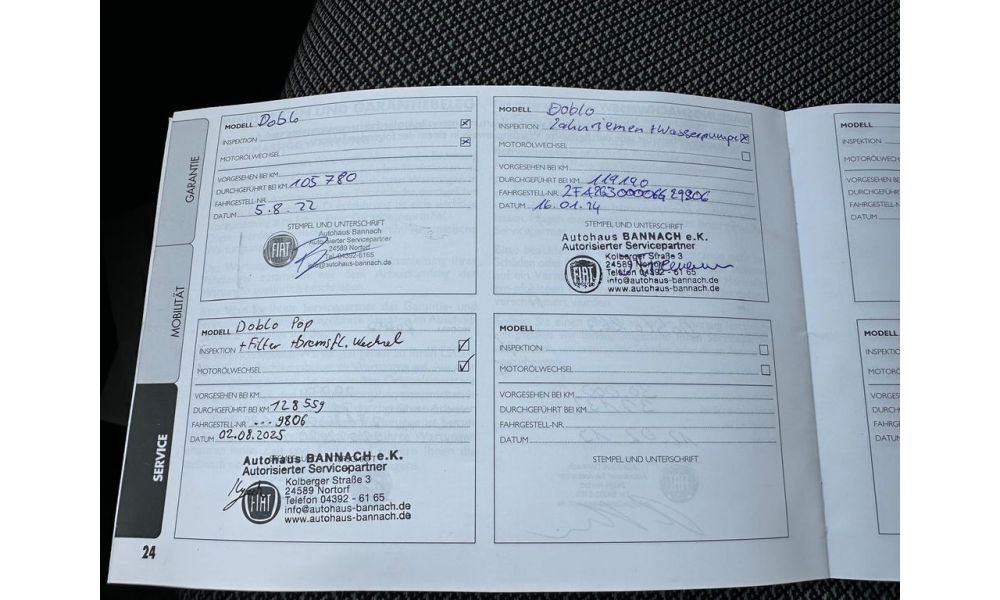 GARANTIE
MOBILITÄT
SERVICE
24
MODELL Doblo
INSPEKTION
MOTORÖLWECHSEL
VORGESEHEN BEI KM
DURCHGEFÜHRT BEI KM 105 780
FAHRGESTELL-NR.
DATUM 5.8.22
STEMPEL UND UNTERSCHRIFT
Autohaus Bannach
Autorisierter Servicepartner
24589 Nortorf
Tel. 04392-6165
info@autohaus-bannach.de
FIAT
MODELL Doblo
INSPEKTION Zahnriemen + Wasserpumpe
MOTORÖLWECHSEL
VORGESEHEN BEI KM
DURCHGEFÜHRT BEI KM 119190
FAHRGESTELL-NR. ZFA26300006429806
DATUM 16.01.24
STEMPEL UND UNTERSCHRIFT
Autohaus BANNACH e.K.
Autorisierter Servicepartner
Kolberger Straße 3
24589 Nortorf
Telefon 04392 - 61 65
info@autohaus-bannach.de
www.autohaus-bannach.de
FIAT
MODELL Doblo Pop
INSPEKTION + Filter + Bremsfl. Wechsel
MOTORÖLWECHSEL
VORGESEHEN BEI KM
DURCHGEFÜHRT BEI KM 128559
FAHRGESTELL-NR. ...9806
DATUM 02.08.2025
STEMPEL UND UNTERSCHRIFT
Autohaus BANNACH e.K.
Autorisierter Servicepartner
Kolberger Straße 3
24589 Nortorf
Telefon 04392 - 61 65
info@autohaus-bannach.de
www.autohaus-bannach.de
FIAT
MODELL
INSPEKTION
MOTORÖLWECHSEL
VORGESEHEN BEI KM
DURCHGEFÜHRT BEI KM
FAHRGESTELL-NR.
DATUM
STEMPEL UND UNTERSCHRIFT
MODELL
INSPEKTION
MOTORÖ
VORGESEHEN BE
DURCHGEFÜ
FAHRGESTELL-
DATUM
MODELL
INSPEKTIO
MOTORÖ
VORGES
DURCH
FAHRG
DATU